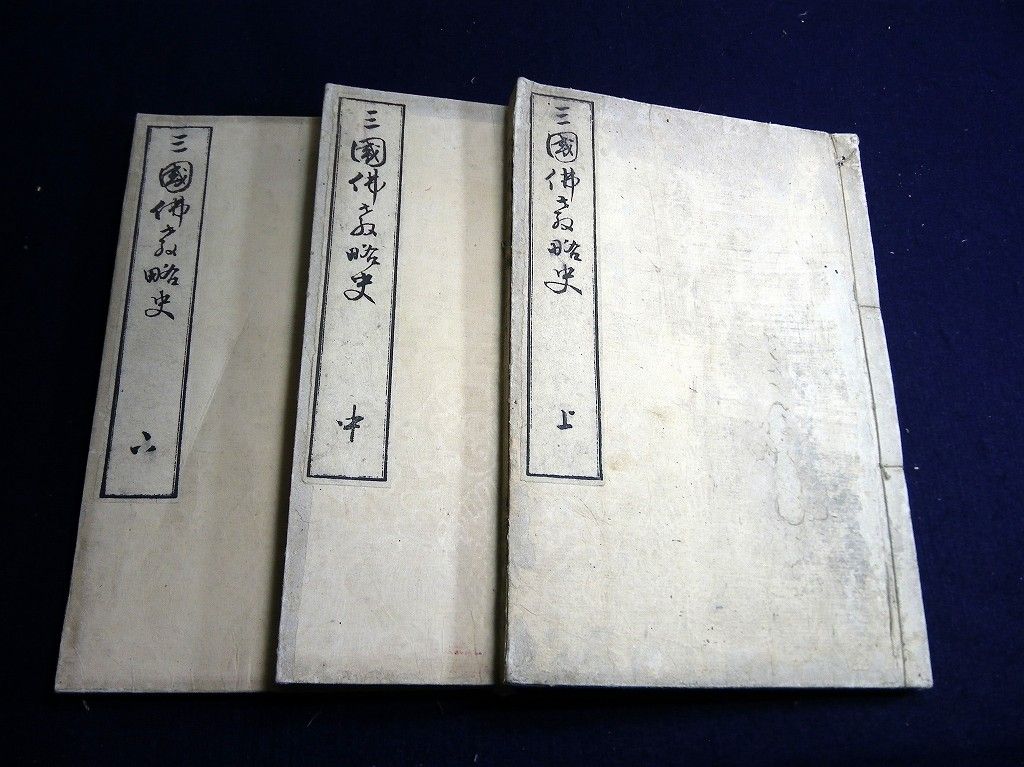 三國佛教略史
上
三國佛教略史
中
三國佛教略史
下